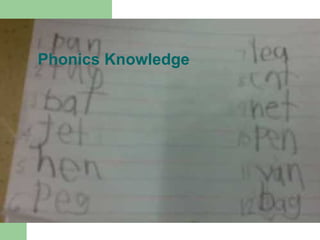 Phonics Knowledge
1 pan
2
3 bat
4 Jet
5 hen
6 Peg
7 leg
8
9 net
10 Pen
11 van
12 bag